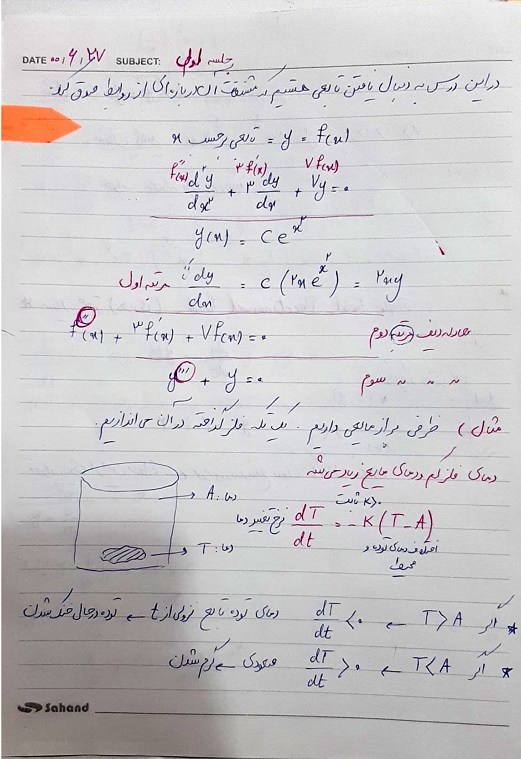 DATE ۰۰/۶/۲۷ SUBJECT: جلسه اول
در این درس به دنبال یافتن تابعی هستیم که مشتقات آن در بازه‌ای از روابط صدق کند.
تابعی برحسب x = y = f(x)
f''(x) ۳f'(x) ۷f(x)
d²y/dx² + ۳ dy/dx + ۷y = ۰
y(x) = C e^x²
مرتبه اول dy/dx = c(۲x e^x²) = ۲xy
f''(x) + ۳f'(x) + ۷f(x) = ۰ معادله دیف مرتبه دوم
y''' + y = ۰ " " " سوم
مثال) ظرفی پر از مایعی داریم. یک تکه فلز گداخته در آن می‌اندازیم.
دمای فلز کم و دمای مایع زیاد می‌شه
K>۰ ثابت
نرخ تغییر دما dT/dt = -K(T-A)
اختلاف دمای توده و
محیط
دما: A
دما: T
* اگر T>A ← dT/dt <۰ دمای توده تابع نزولی از t ← توده در حال خنک شدن
* اگر T<A ← dT/dt >۰ صعودی ← گرم شدن
Sahand